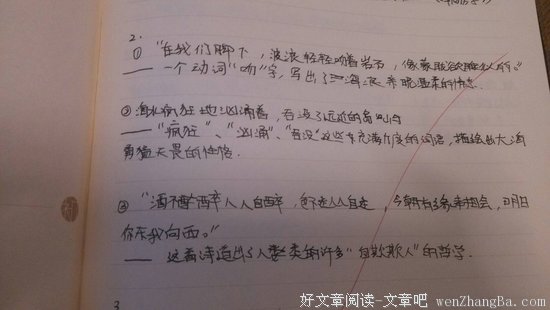 2.
① “在我们脚下，波浪轻轻吻着岩石，像朦胧欲睡似的。”
—— 一个动词“吻”字，写出了海浪
②海水疯狂地汹涌着，吞没了远近的岛屿
——“疯狂”、“汹涌”、“吞没”这些充满力度的词语，描绘出大海
勇猛无畏的性格.
③ “酒不醉人人自醉， 今朝有缘来相会，明日
你东我向西。”
—— 这着实道出了人类的许多“自欺欺人”的哲学.
3
好文章阅读-文章吧 wenZhangBa.com